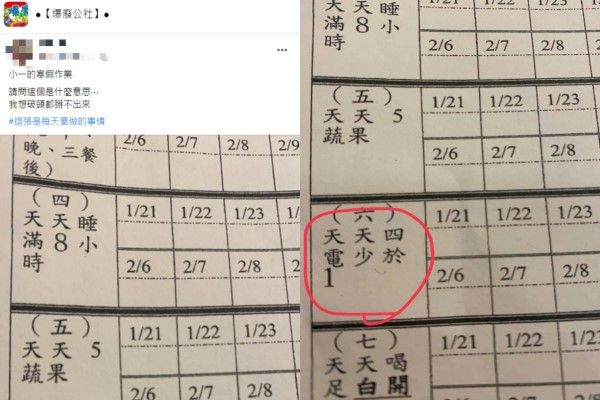 ●【爆廢公社】●
小一的寒假作業
請問這個是什麼意思…
我想破頭都
不出來
#這張是每天要做的事情
晚、三餐
後）
2/6 2/7 2/8 2/9
（四）
天天睡
滿8小
時
1/21 1/22 1/23
2/6 2/7 2/8
（五）
天天5
蔬果
1/21 1/22 1/23
2/6 2/7 2/8
天天睡
滿8小
時
2/6 2/7 2/8
（五）
天天5
蔬果
1/21 1/22 1/23
2/6 2/7 2/8
（六）
天天四
電少於
1
1/21 1/22 1/23
2/6 2/7 2/8
（七）
天天喝
足白開
1/21 1/22 1/23
2/6 2/7 2/8